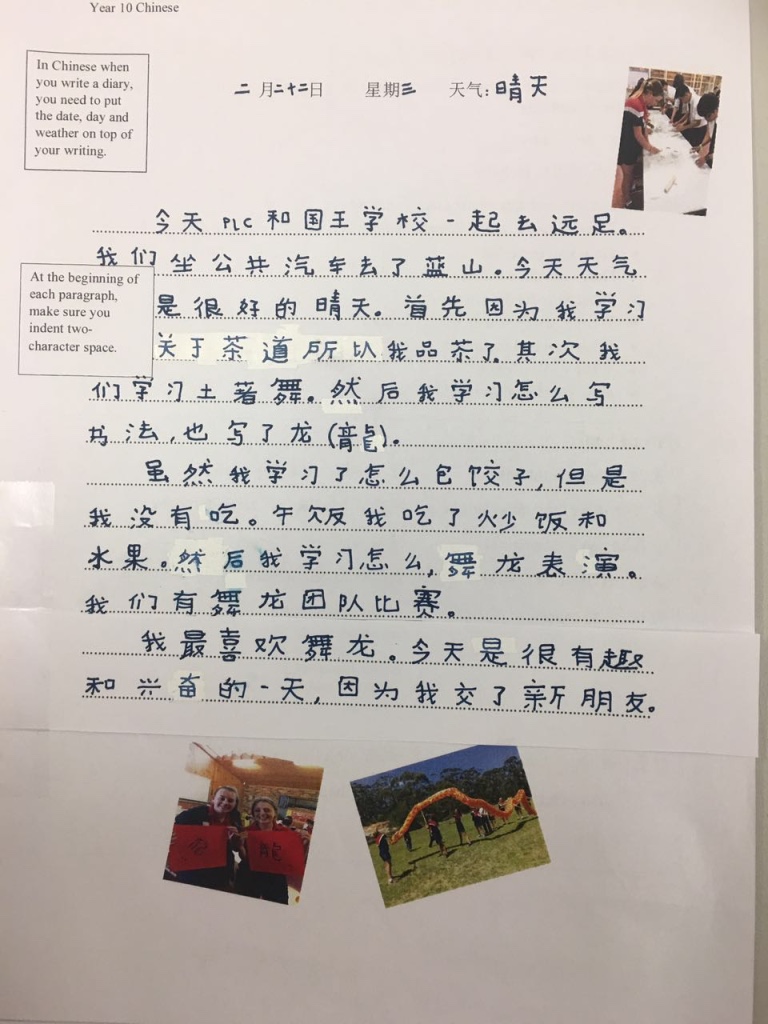 Year 10 Chinese
In Chinese when
you write a diary,
you need to put
the date, day and
weather on top of
your writing.
二月二十二日 星期三 天气:晴天
今天PLC和国王学校一起去远足。
我们坐公共汽车去了蓝山。今天天气
At the beginning of
each paragraph,
make sure you
indent two-
character space.
是很好的晴天。首先因为我学习
关于茶道所以我品茶了.其次我
们学习土著舞。然后我学习怎么写
书法,也写了龙(龍)。
虽然我学习了怎么包饺子,但是
我没有吃。午饭我吃了炒饭和
水果。然后我学习怎么,舞龙表演。
我们有舞龙团队比赛。
我最喜欢舞龙。今天是很有趣
和兴奋的一天,因为我交了新朋友。
龍